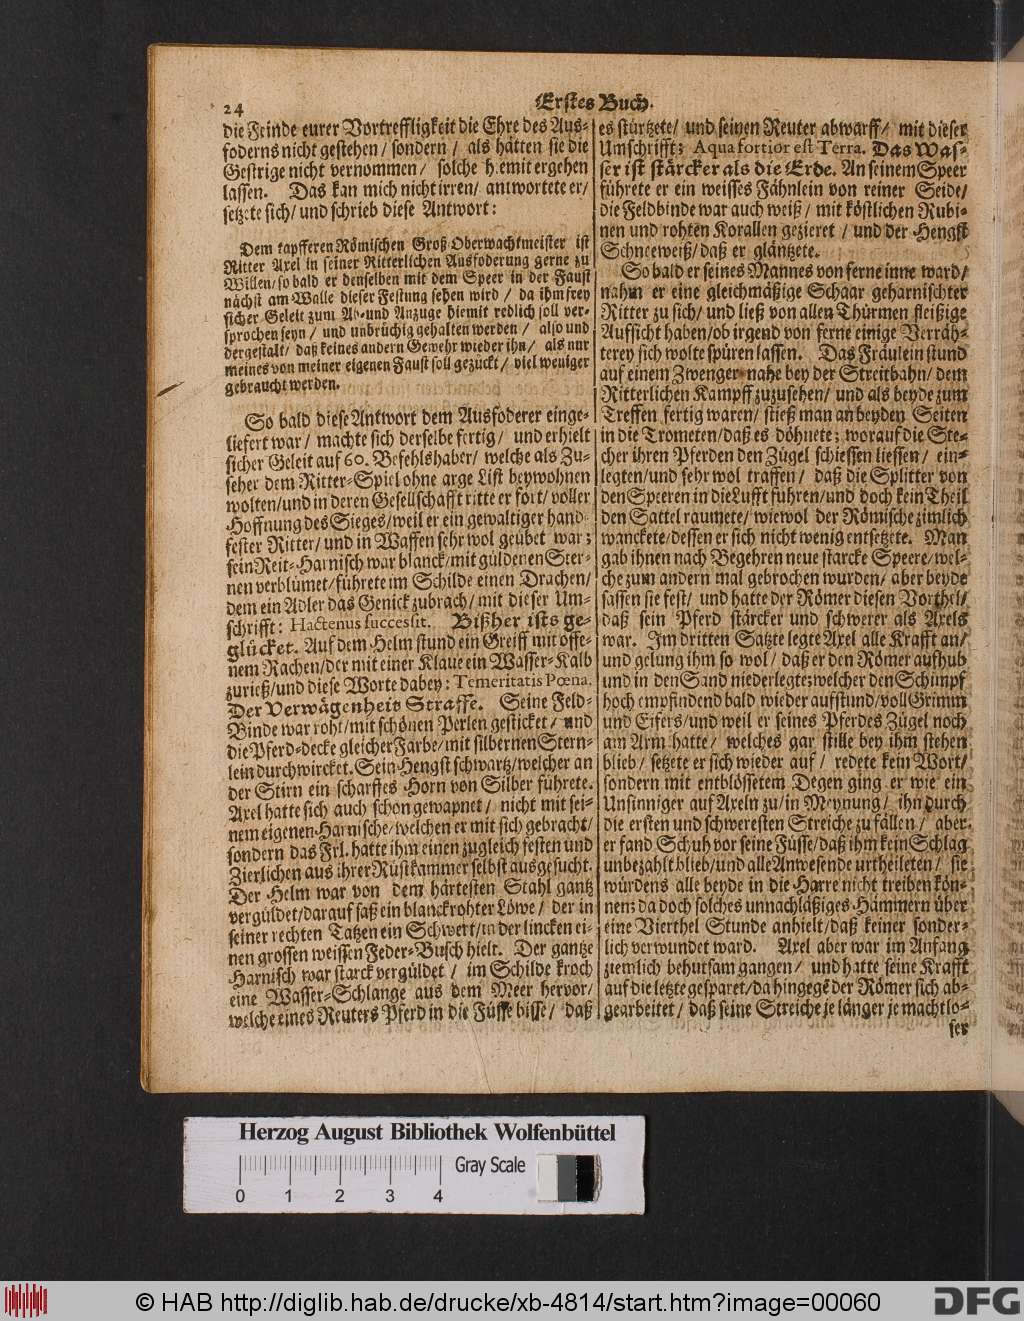 24
Erstes Buch.
die Feinde eurer Vortreffligkeit die Ehre des Aus-
foderns nicht gestehen/ sondern/ als hätten sie die
Gestrige nicht vernommen/ solche hiemit ergehen
lassen. Das kan mich nicht irren/ antwortete er/
setzete sich/ und schrieb diese Antwort:
Dem tapfferen Römischen Groß Oberwachtmeister ist
Ritter Axel in seiner Ritterlichen Ausfoderung gerne zu
Willen/ so bald er denselben mit dem Speer in der Faust
nächst am Walle dieser Festung sehen wird/ da ihm frey
sicher Geleit zum Ab-und Anzuge hiemit redlich soll ver-
sprochen seyn/ und unbrüchig gehalten werden/ also und
dergestalt/ daß keines andern Gewehr wieder ihn/ als nur
meines von meiner eigenen Faust soll gezückt/ viel weniger
gebraucht werden.
So bald diese Antwort dem Ausfoderer einge-
liefert war/ machte sich derselbe fertig/ und erhielt
sicher Geleit auf 60. Befehlshaber/ welche als Zu-
seher dem Ritter-Spiel ohne arge List beywohnen
wolten/ und in deren Gesellschafft ritte er fort/ voller
Hoffnung des Sieges/ weil er ein gewaltiger hand-
fester Ritter/ und in Waffen sehr wol geübet war;
sein Reit-Harnisch war blanck/ mit güldenen Ster-
nen verblümet/ führete im Schilde einen Drachen/
dem ein Adler das Genick zubrach/ mit dieser Um-
schrifft: Hactenus successit. Bißher ists ge-
glücket. Auf dem Helm stund ein Greiff mit offe-
nem Rachen/ der mit einer Klaue ein Wasser-Kalb
zurieß/ und diese Worte dabey: Temeritatis Pœna.
Der Verwägenheit Straffe. Seine Feld-
Binde war roht/ mit schönen Perlen gesticket/ und
die Pferd-decke gleicher Farbe/ mit silbernen Stern-
lein durchwircket. Sein Hengst schwartz/ welcher an
der Stirn ein scharffes Horn von Silber führete.
Axel hatte sich auch schon gewapnet/ nicht mit sei-
nem eigenen Harnische/ welchen er mit sich gebracht/
sondern das Frl. hatte ihm einen zugleich festen und
Zierlichen aus ihrer Rüstkammer selbst ausgesucht.
Der Helm war von dem härtesten Stahl gantz
vergüldet/ darauf saß ein blanckrohter Löwe/ der in
seiner rechten Tatzen ein Schwert/ in der lincken ei-
nen grossen weissen Feder-Busch hielt. Der gantze
Harnisch war starck vergüldet/ im Schilde kroch
eine Wasser-Schlange aus dem Meer hervor/
welche eines Reuters Pferd in die Füsse bisse/ daß
es stürtzete/ und seinen Reuter abwarff/ mit dieser
Umschrifft; Aqua fortior est Terra. Das Was-
ser ist stärcker als die Erde. An seinem Speer
führete er ein weisses Fähnlein von reiner Seide/
die Feldbinde war auch weiß/ mit köstlichen Rubi-
nen und rohten Korallen gezieret/ und der Hengst
Schneeweiß/ daß er gläntzete.
So bald er seines Mannes von ferne inne ward/
nahm er eine gleichmäßige Schaar geharnischter
Ritter zu sich/ und ließ von allen Thürmen fleißige
Aufsicht haben/ ob irgend von ferne einige Verräh-
terey sich wolte spüren lassen. Das Fräulein stund
auf einem Zwenger nahe bey der Streitbahn/ dem
Ritterlichen Kampff zuzusehen/ und als beyde zum
Treffen fertig waren/ stieß man an beyden Seiten
in die Trometen/ daß es döhnete; worauf die Ste-
cher ihren Pferden den Zügel schiessen liessen/ ein-
legten/ und sehr wol traffen/ daß die Splitter von
den Speeren in die Lufft fuhren/ und doch kein Theil
den Sattel raumete/ wiewol der Römische zimlich
wanckete/ dessen er sich nicht wenig entsetzete. Man
gab ihnen nach Begehren neue starcke Speere/ wel-
che zum andern mal gebrochen wurden/ aber beyde
sassen sie fest/ und hatte der Römer diesen Vorthel/
daß sein Pferd stärcker und schwerer als Axels
war. Im dritten Satzte legte Axel alle Krafft an/
und gelung ihm so wol/ daß er den Römer aufhub
und in den Sand niederlegte; welcher den Schimpf
hoch empfindend bald wieder aufstund/ voll Grimm
und Eifers/ und weil er seines Pferdes Zügel noch
am Arm hatte/ welches gar stille bey ihm stehen
blieb/ setzete er sich wieder auf/ redete kein Wort/
sondern mit entblössetem Degen ging er wie ein
Unsinniger auf Axeln zu/ in Meynung/ ihn durch
die ersten und schweresten Streiche zu fällen/ aber
er fand Schuh vor seine Füsse/ daß ihm kein Schlag
unbezahlt blieb/ und alle Anwesende urtheileten/ sie
würdens alle beyde in die Harre nicht treiben kön-
nen; da doch solches unnachläßiges Hämmern über
eine Vierthel Stunde anhielt/ daß keiner sonder-
lich verwundet ward. Axel aber war im Anfang
ziemlich behutsam gangen/ und hatte seine Krafft
auf die letzte gesparet/ da hingegē der Römer sich ab-
gearbeitet/ daß seine Streiche je länger je machtlo-
ser
Herzog August Bibliothek Wolfenbüttel
Gray Scale
0 1 2 3 4
© HAB http://diglib.hab.de/drucke/xb-4814/start.htm?image=00060
DFG